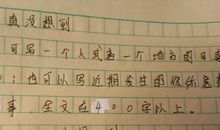 真没想到
可写一个人或者一个地方的
也可以写近期发生的你
事 全文在400字以上。